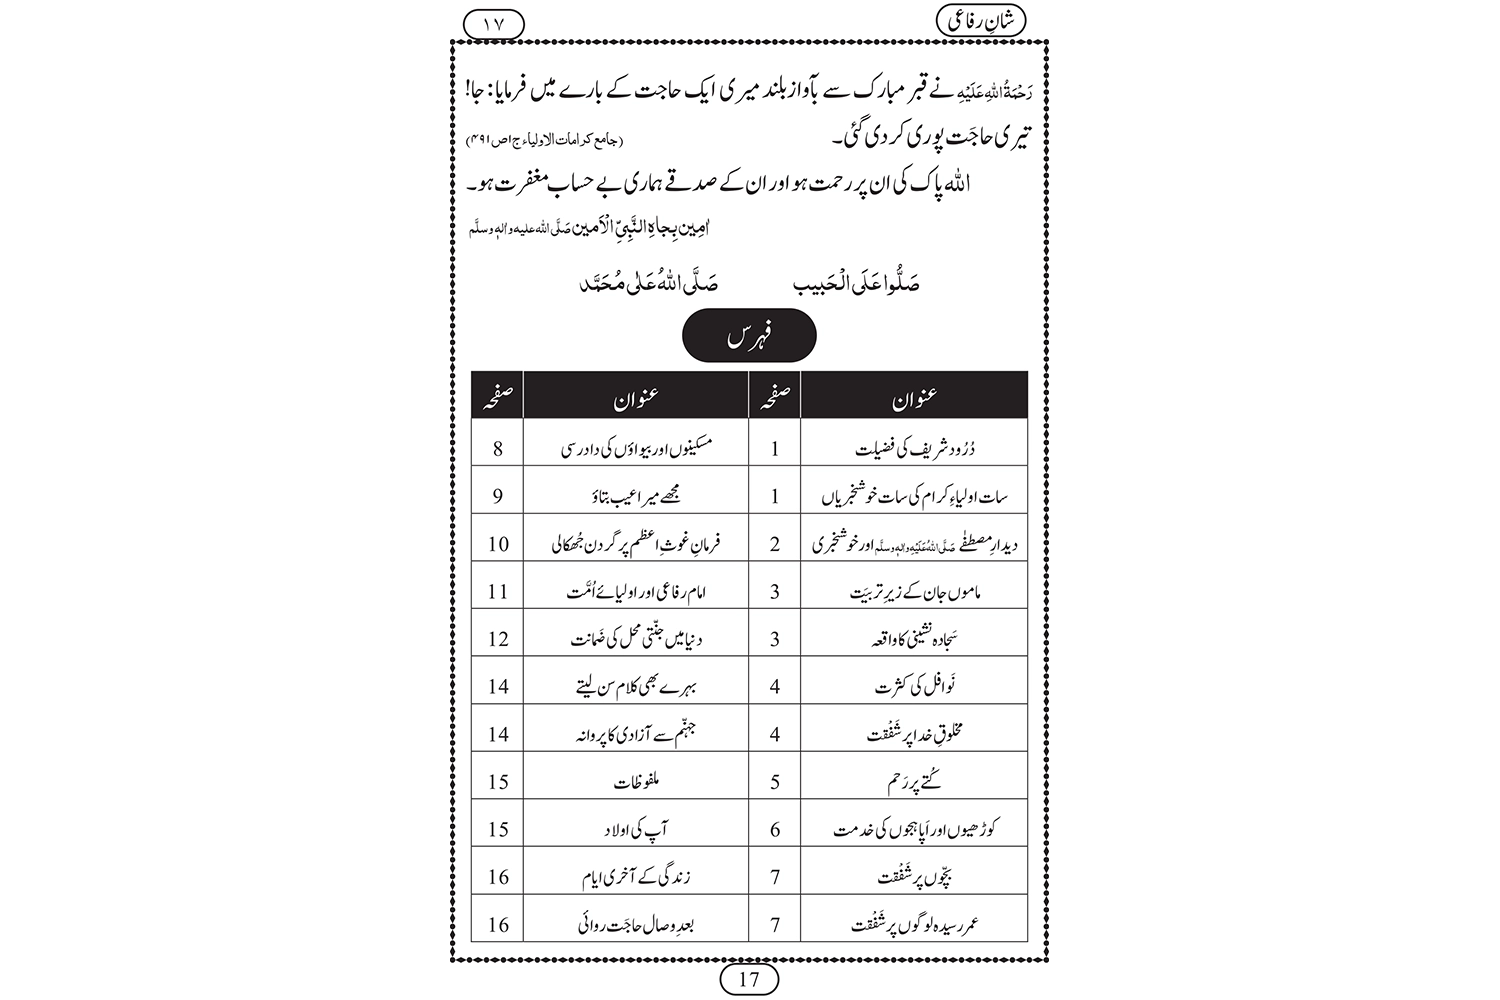 شانِ رفاعی
۱۷
رَحْمَۃُ اللہِ عَلَیْہِ نے قبر مبارک سے بآوازِ بلند میری ایک حاجت کے بارے میں فرمایا: جا!
تیری حاجَت پوری کر دی گئی۔ (جامع کرامات الاولیاء ج۱ص۴۹۱)
اللہ پاک کی ان پر رحمت ہو اور ان کے صدقے ہماری بے حساب مغفرت ہو۔
اٰمِین بِجاہِ النَّبِیِّ الْاَمین صَلَّی اللہ علیہ واٰلہٖ وسلَّم
صَلُّوا عَلَی الْحَبِیب صَلَّی اللہُ عَلٰی مُحَمَّد
فہرس
عنوان صفحہ عنوان صفحہ
دُرُود شریف کی فضیلت 1 مسکینوں اور بیواؤں کی دادرسی 8
سات اولیاءِ کرام کی سات خوشخبریاں 1 مجھے میرا عیب بتاؤ 9
دیدارِ مصطفٰے صَلَّی اللہُ عَلَیْہِ واٰلہٖ وسلَّم اور خوشخبری 2 فرمانِ غوثِ اعظم پر گردن جُھکالی 10
ماموں جان کے زیرِ تربیَت 3 امام رفاعی اور اولیائے اُمَّت 11
سَجادہ نشینی کا واقعہ 3 دنیا میں جنّتی محل کی ضَمانت 12
نَوافل کی کثرت 4 بہرے بھی کلام سن لیتے 14
مخلوقِ خدا پر شَفْقت 4 جہنّم سے آزادی کا پروانہ 14
کُتے پر رَحم 5 ملفوظات 15
کوڑھیوں اور اَپاہجوں کی خدمت 6 آپ کی اولاد 15
بچّوں پر شَفْقت 7 زندگی کے آخری ایام 16
عمر رسیدہ لوگوں پر شَفْقت 7 بعدِ وصال حاجَت روائی 16
17